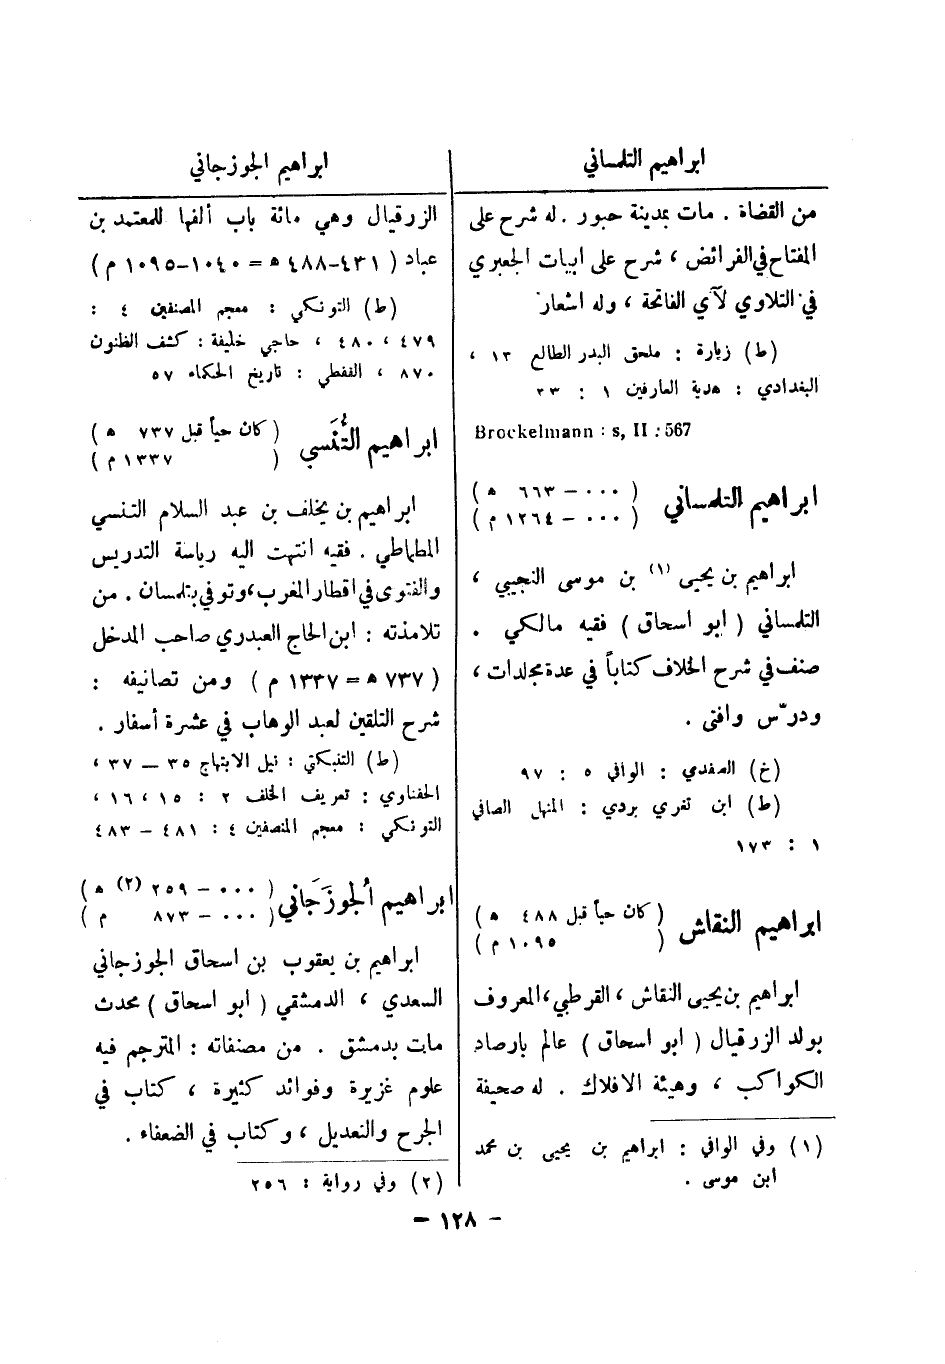 ابراهيم التلمساني
من القضاة . مات بمدينة حبور . له شرح على
المفتاح في الفرائض ، شرح على ابيات الجعبري
في التلاوي لآي الفاتحة ، وله اشعار .
(ط) زبارة : ملحق البدر الطالع ١٣ ،
البغدادي : هدية العارفين ١ : ٣٣
Brockelmann : s, II : 567
ابراهيم التلمساني ( ٠٠٠ – ٦٦٣ ه )
( ٠٠٠ – ١٢٦٤ م )
ابراهيم بن يحيى (١) بن موسى النجيبي ،
التلمساني ( ابو اسحاق ) فقيه مالكي .
صنف في شرح الخلاف كتاباً في عدة مجلدات ،
ودرّس وافتى .
(خ) الصفدي : الوافي ٥ : ٩٧
(ط) ابن تغري بردي : المنهل الصافي
١ : ١٧٣
ابراهيم النقاش ( كان حياً قبل ٤٨٨ ه )
( ١٠٩٥ م )
ابراهيم بن يحيى النقاش ، القرطبي ، المعروف
بولد الزرقيال ( ابو اسحاق ) عالم بارصاد
الكواكب ، وهيئة الافلاك . له صحيفة
(١) وفي الوافي : ابراهيم بن يحيى بن محمد
ابن موسى .
ابراهيم الجوزجاني
الزرقيال وهي مائة باب ألفها للمعتمد بن
عباد ( ٤٣١–٤٨٨ ه = ١٠٤٠–١٠٩٥ م )
(ط) التونكي : معجم المصنفين ٤ :
٤٧٩ ، ٤٨٠ ، حاجي خليفة : كشف الظنون
٨٧٠ ، القفطي : تاريخ الحكماء ٥٧
ابراهيم التَّنَسي ( كان حياً قبل ٧٣٧ ه )
( ١٣٣٧ م )
ابراهيم بن يخلف بن عبد السلام التنسي
المطماطي . فقيه انتهت اليه رياسة التدريس
والفتوى في اقطار المغرب ، وتوفي بتلمسان . من
تلامذته : ابن الحاج العبدري صاحب المدخل
( ٧٣٧ ه = ١٣٣٧ م ) ومن تصانيفه :
شرح التلقين لعبد الوهاب في عشرة أسفار .
(ط) التنبكتي : نيل الابتهاج ٣٥ – ٣٧ ،
الحفناوي : تعريف الخلف ٢ : ١٥ ، ١٦ ،
التونكي : معجم المنصفين ٤ : ٤٨١ – ٤٨٣
ابراهيم الجوزَجاني ( ٠٠٠ – ٢٥٩ (٢) ه )
( ٠٠٠ – ٨٧٣ م )
ابراهيم بن يعقوب بن اسحاق الجوزجاني
السعدي ، الدمشقي ( ابو اسحاق ) محدث
مات بدمشق . من مصنفاته : المترجم فيه
علوم غزيرة وفوائد كثيرة ، كتاب في
الجرح والتعديل ، وكتاب في الضعفاء .
(٢) وفي رواية : ٢٥٦
– ١٢٨ –